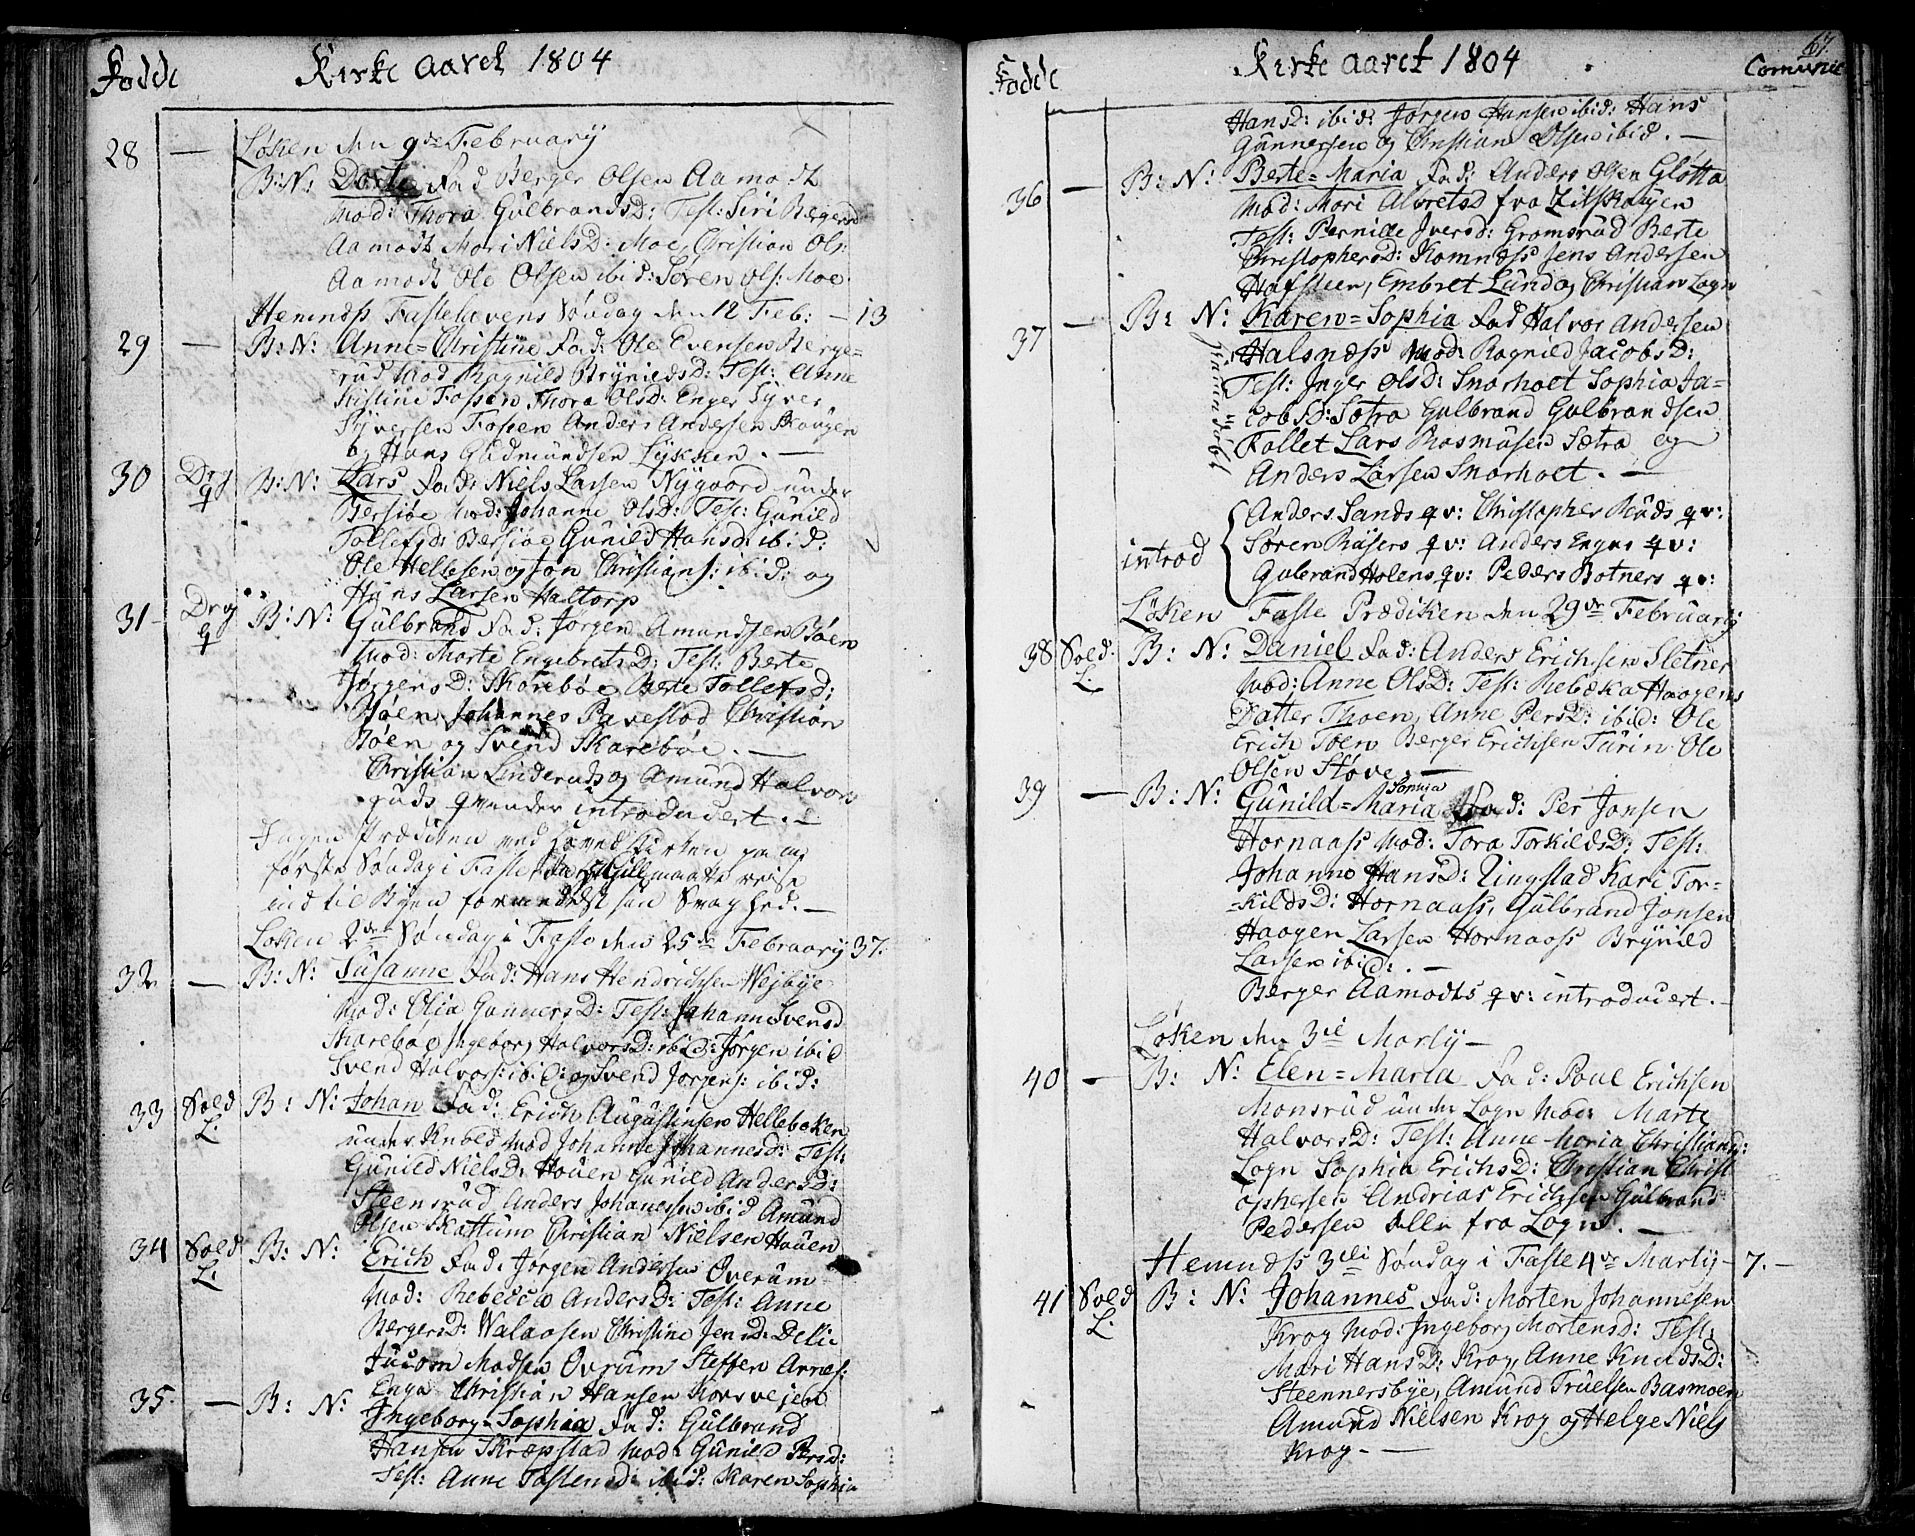 Fødde Kirke Aaret 1804
28 — Løken den 9de Februarij
B: N: Dorte Fad Berger Olsen Aamodt
Mod: Thora Gulbrandsd: Test: Siri Bergersd
Aamodt Mari NielsD: Moe Christian Ols:
Aamodt Ole Olsen ibid: Søren Ols: Moe.
Hemnæss Fastelavens Søndag den 12 Feb: — 13
29 — B: N: Anne=Christine Fad: Ole Evensen Berge=
rud Mod Ragnild BrynildsD: Test: Anne
Kistine Fossen Thora OlsD: Enger Syver
Syversen Fossen Anders Andersen Skougen
og Hans Gudmundsen Lykken. —
30 Drg q B: N: Lars Fad: Niels Larsen Nygaard under
Bersiøe Mod: Johanne OlsD: Test: Gunild
Tollefsd: Bersiøe Gunild Hansd: ibid:
Ole Hellesen og Jon Christians: ibid: og
Hans Larsen Haltorp
31 — Drg q B: N: Gulbrand Fad: Jørgen Amundsen Bøen
Mod: Marte EngebretsD: Test: Berte
JørgersD: Skarebøe Berte Tollefsd:
Bøen Johannes Pavestad Christian
Bøen og Svend Skarebøe. —
Christian Linderuds og Amund Halvors
ruds qvender introducert. —
Ingen Prædiken ved Hoved Kirken paa
første Søndag i Faste maatte reise
ind til Byen formedelst sin Svaghed. —
Løken 2den Søndag i Faste den 25de Februarij 37.
32 — B: N: Susanne Fad: Hans Hendrichsen Wejbye
Mod: Elia GunnersD: Test: Johann Svensd
Skarebøe Ingeborg HalvorsD: ibid: Jørgen ibid
Svend Halvors: ibid: og Svend Jørgens: ibid:
33 Sold L: B: N: Johan Fad: Erich Augustinsen Hellebeken
under Knold Mod Johanne Johannesd: Test:
Gunild NielsD: Houen Gunild AndersD:
Steensrud Anders Johanessen ibid Amund
Olsen Skattum Christian Nielsen Houen
34 Sold L: B: N: Erich Fad: Jørgen Andersen Overum
Mod: Rebecca AndersD: Test: Anne
BergersD: Walaasen Christine JensD: Delie
Jucom Madsen Ovrum Steffen Arnes:
Enga Christian Hansen Korsvejen
35. — B: N: Ingeborg=Sophia Fad: Gulbrand
Hansen Skrepstad Mod: Gunild Persd:
Test: Anne Tostensd: ibid: Karen Sophia
Fødde Kirke Aaret 1804 Comunic 67.
HansD: ibid: Jørgen Hansen ibid: Hans
Gunnersen og Christian Olsen ibid. —
36 — B: N: Berte=Maria Fad: Anders Olsen Glotta
Mod: Mari Alvretsd fra Lilskougen
Test: Pernille Iversd: Gromsrud Berte
ChristophersD: Komnæss Jens Andersen
Hafsteen, Embret Lund og Christian Logn
37 — B: N: Karen=Sophia Fad Halvor Andersen
Halsnæss Mod: Ragnild JacobsD:
Test: Inger OlsD: Snarholt Sophia Ja=
=cobsD: Sætra Gulbrand Gulbrandsen
Follet Lars Rasmusen Sætra og
Anders Larsen Snarholt. —
introd { Anders Sands qv: Christopher Ruds qv:
Søren Risers qv: Anders Engns qv:
Gulbrand Holens qv: Peders Botners qv:
Løken Faste Prædiken den 29de Februarij
38 Sold: L: B: N: Daniel Fad: Anders Erichsen Sletner
Mod: Anne OlsD: Test: Rebæka Haagens
Datter Thoen, Anne PersD: ibid: Ole
Erich Toen Berger Erichsen Turin Ole
Olsen Støve. —
39 — B: N: Gunild=Maria Sophia Fad: Per Jonsen
Hornaass Mod: Tora TorkildsD: Test:
Johanne HansD: Ringstad Kari Tor=
=kildsD: Hornaass, Gulbrand Jonsen
Haagen Larsen Hornaass Brynild
Larsen ibid: —
Berger Aamodts qv: introducert. —
Løken den 3die Martij —
40 — B: N: Elen=Maria Fad: Poul Erichsen
Monsrud under Logn Mod: Marte
HalvorsD: Test: Anne Maria ChristianD:
Logn Sophia ErichsD: Christian Christ
ophersen Andrias Erichsen Gulbrand
Pedersen Alle fra Logn. —
Hemnæss 3die Søndag i Faste 4de Martij — 7. —
41 Sold L: B: N: Johannes Fad: Morten Johannesen
Krog Mod: Ingeborg Mortensd: Test:
Mari HansD: Krog, Anne KnudsD:
Steennersbye, Amund Truelsen Basmoen
Amund Nielsen Krog og Helge Niels
Krog. —